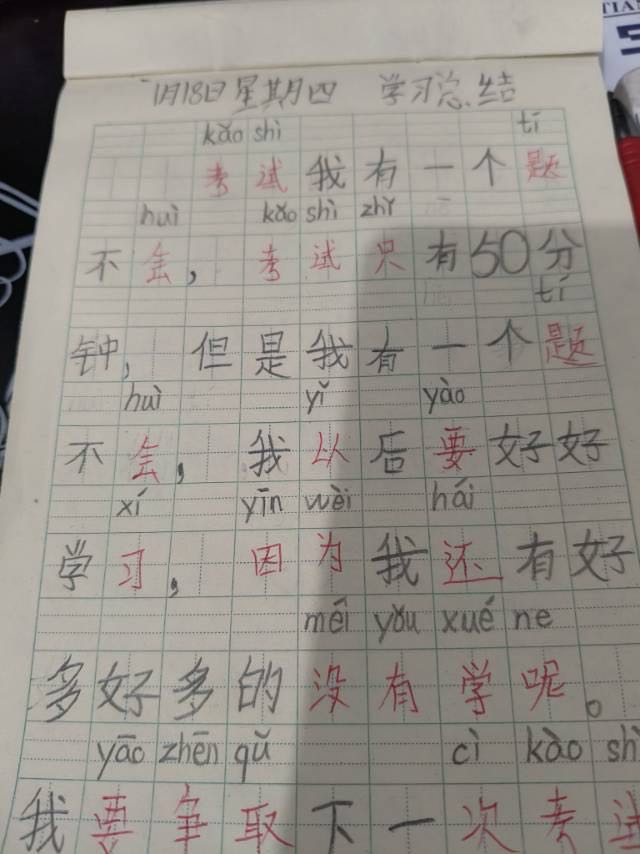 1月18日星期四 学习总结
kǎo shì tí
考试我有一个题
huì kǎo shì zhǐ
不会，考试只有50分
tí
钟，但是我有一个题
huì yǐ yào
不会，我以后要好好
xí yīn wèi hái
学习，因为我还有好
méi yǒu xué ne
多好多的没有学呢。
yāo zhēn qǔ cì kào shì
我要争取下一次考试